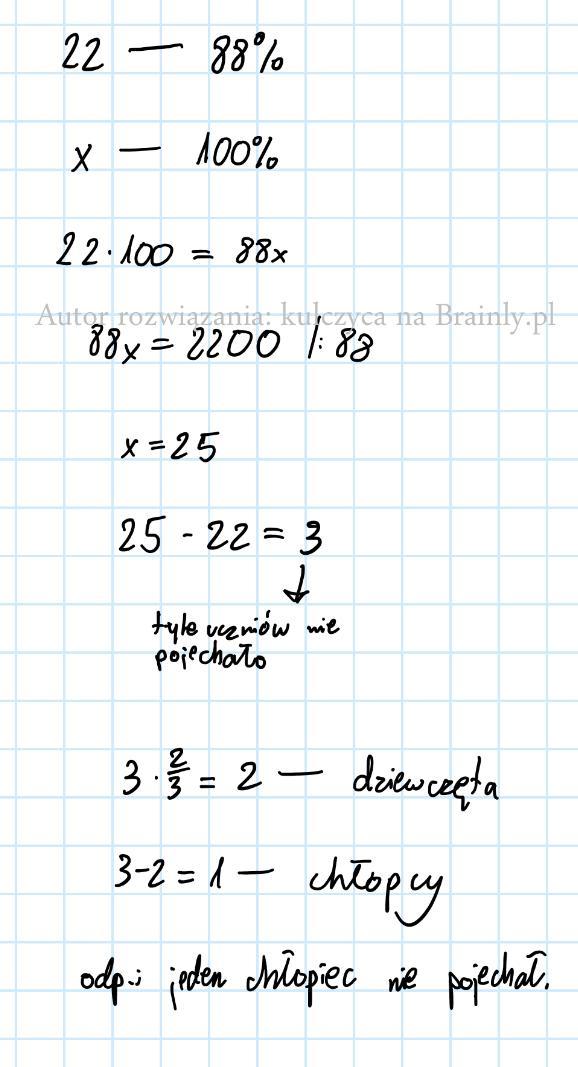 22 — 88%
x — 100%
22·100 = 88x
Autor rozwiązania: kulczyca na Brainly.pl
88x = 2200 /: 88
x = 25
25 - 22 = 3
↓
tyle uczniów nie
pojechało
3 · 2/3 = 2 — dziewczęta
3-2 = 1 — chłopcy
odp.: jeden chłopiec nie pojechał.